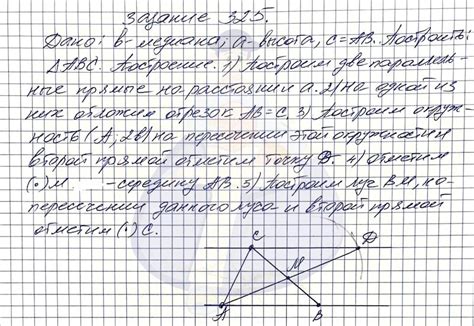 Задание 325.
Дано: b- медиана, a- высота, c=AB. Построить:
ΔABC. Построение. 1) Построим две параллель-
ные прямые на расстоянии a. 2) На одной из
них отложим отрезок AB=c. 3) Построим окруж-
ность (A; 2b) на пересечении этой окружности и
второй прямой отметим точку D 4) отметим
(·) M - середину AB. 5) Построим луч BM, на
пересечении данного луча и второй прямой
отметим (·) C.
C D
M
A B